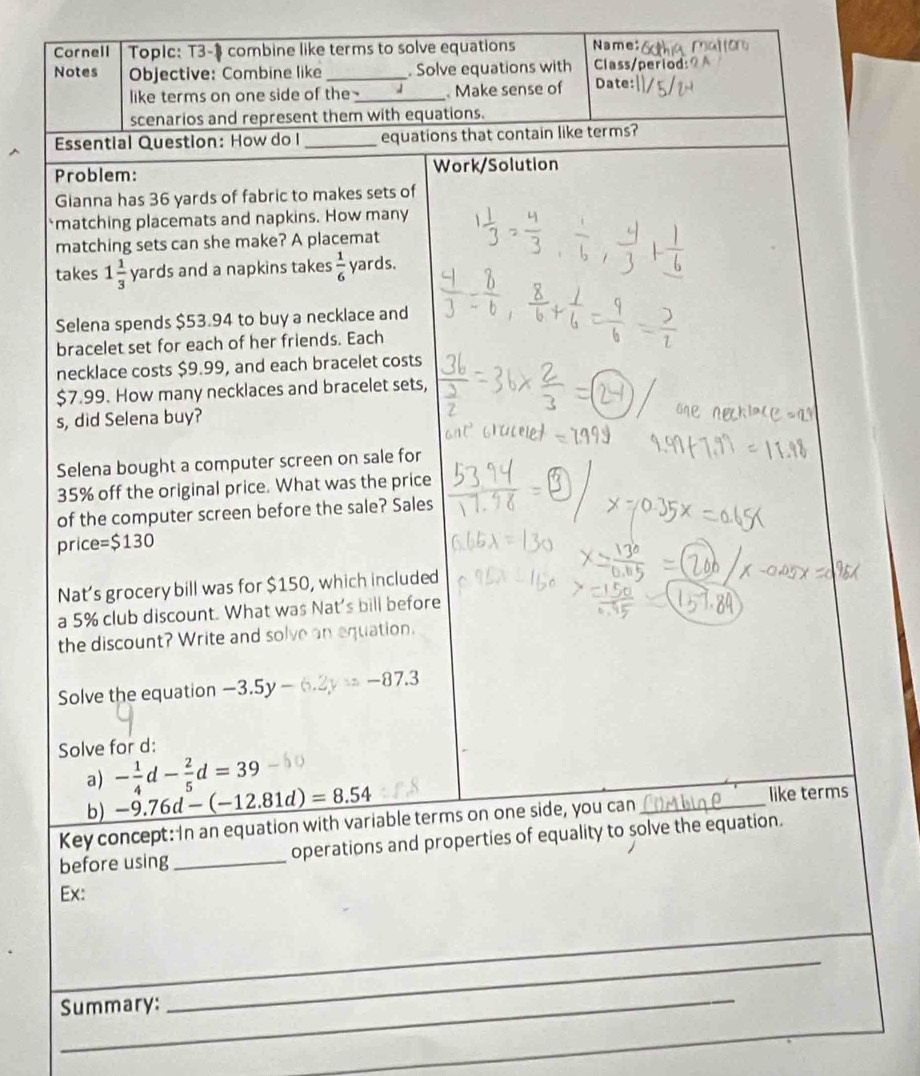 Cornell Notes
Topic: T3- combine like terms to solve equations
Objective: Combine like ________. Solve equations with
like terms on one side of the ________. Make sense of
scenarios and represent them with equations.
Name:
Class/period:
Date: 11/5/24
Essential Question: How do I ________ equations that contain like terms?
Problem:
Gianna has 36 yards of fabric to makes sets of
matching placemats and napkins. How many
matching sets can she make? A placemat
takes 1 1/3 yards and a napkins takes 1/6 yards.
Selena spends $53.94 to buy a necklace and
bracelet set for each of her friends. Each
necklace costs $9.99, and each bracelet costs
$7.99. How many necklaces and bracelet sets,
s, did Selena buy?
Selena bought a computer screen on sale for
35% off the original price. What was the price
of the computer screen before the sale? Sales
price=$130
Nat's grocery bill was for $150, which included
a 5% club discount. What was Nat's bill before
the discount? Write and solve an equation.
Solve the equation −3.5y − 6.2y = −87.3
9
Solve for d:
a) −1/4 d − 2/5 d = 39 -60
b) −9.76d − (−12.81d) = 8.54
Work/Solution
1 1/3 = 4/3, 1/6, 4/3 + 1/6
4/3 = 8/6, 8/6 + 1/6 = 9/6 = 3/2
36/(3/2) = 36 × 2/3 = 24 /
one necklace
9.99+7.99 = 17.98
= 7.99
5394/17.98 = 3 / x-0.35x = 0.65x
0.65x = 130 x = 130/0.65 = 200 / x -0.05x = 0.95x
0.95x = 150 x = 150/0.95 = 157.89
Key concept: In an equation with variable terms on one side, you can combine like terms
before using ________ operations and properties of equality to solve the equation.
Ex:
Summary: